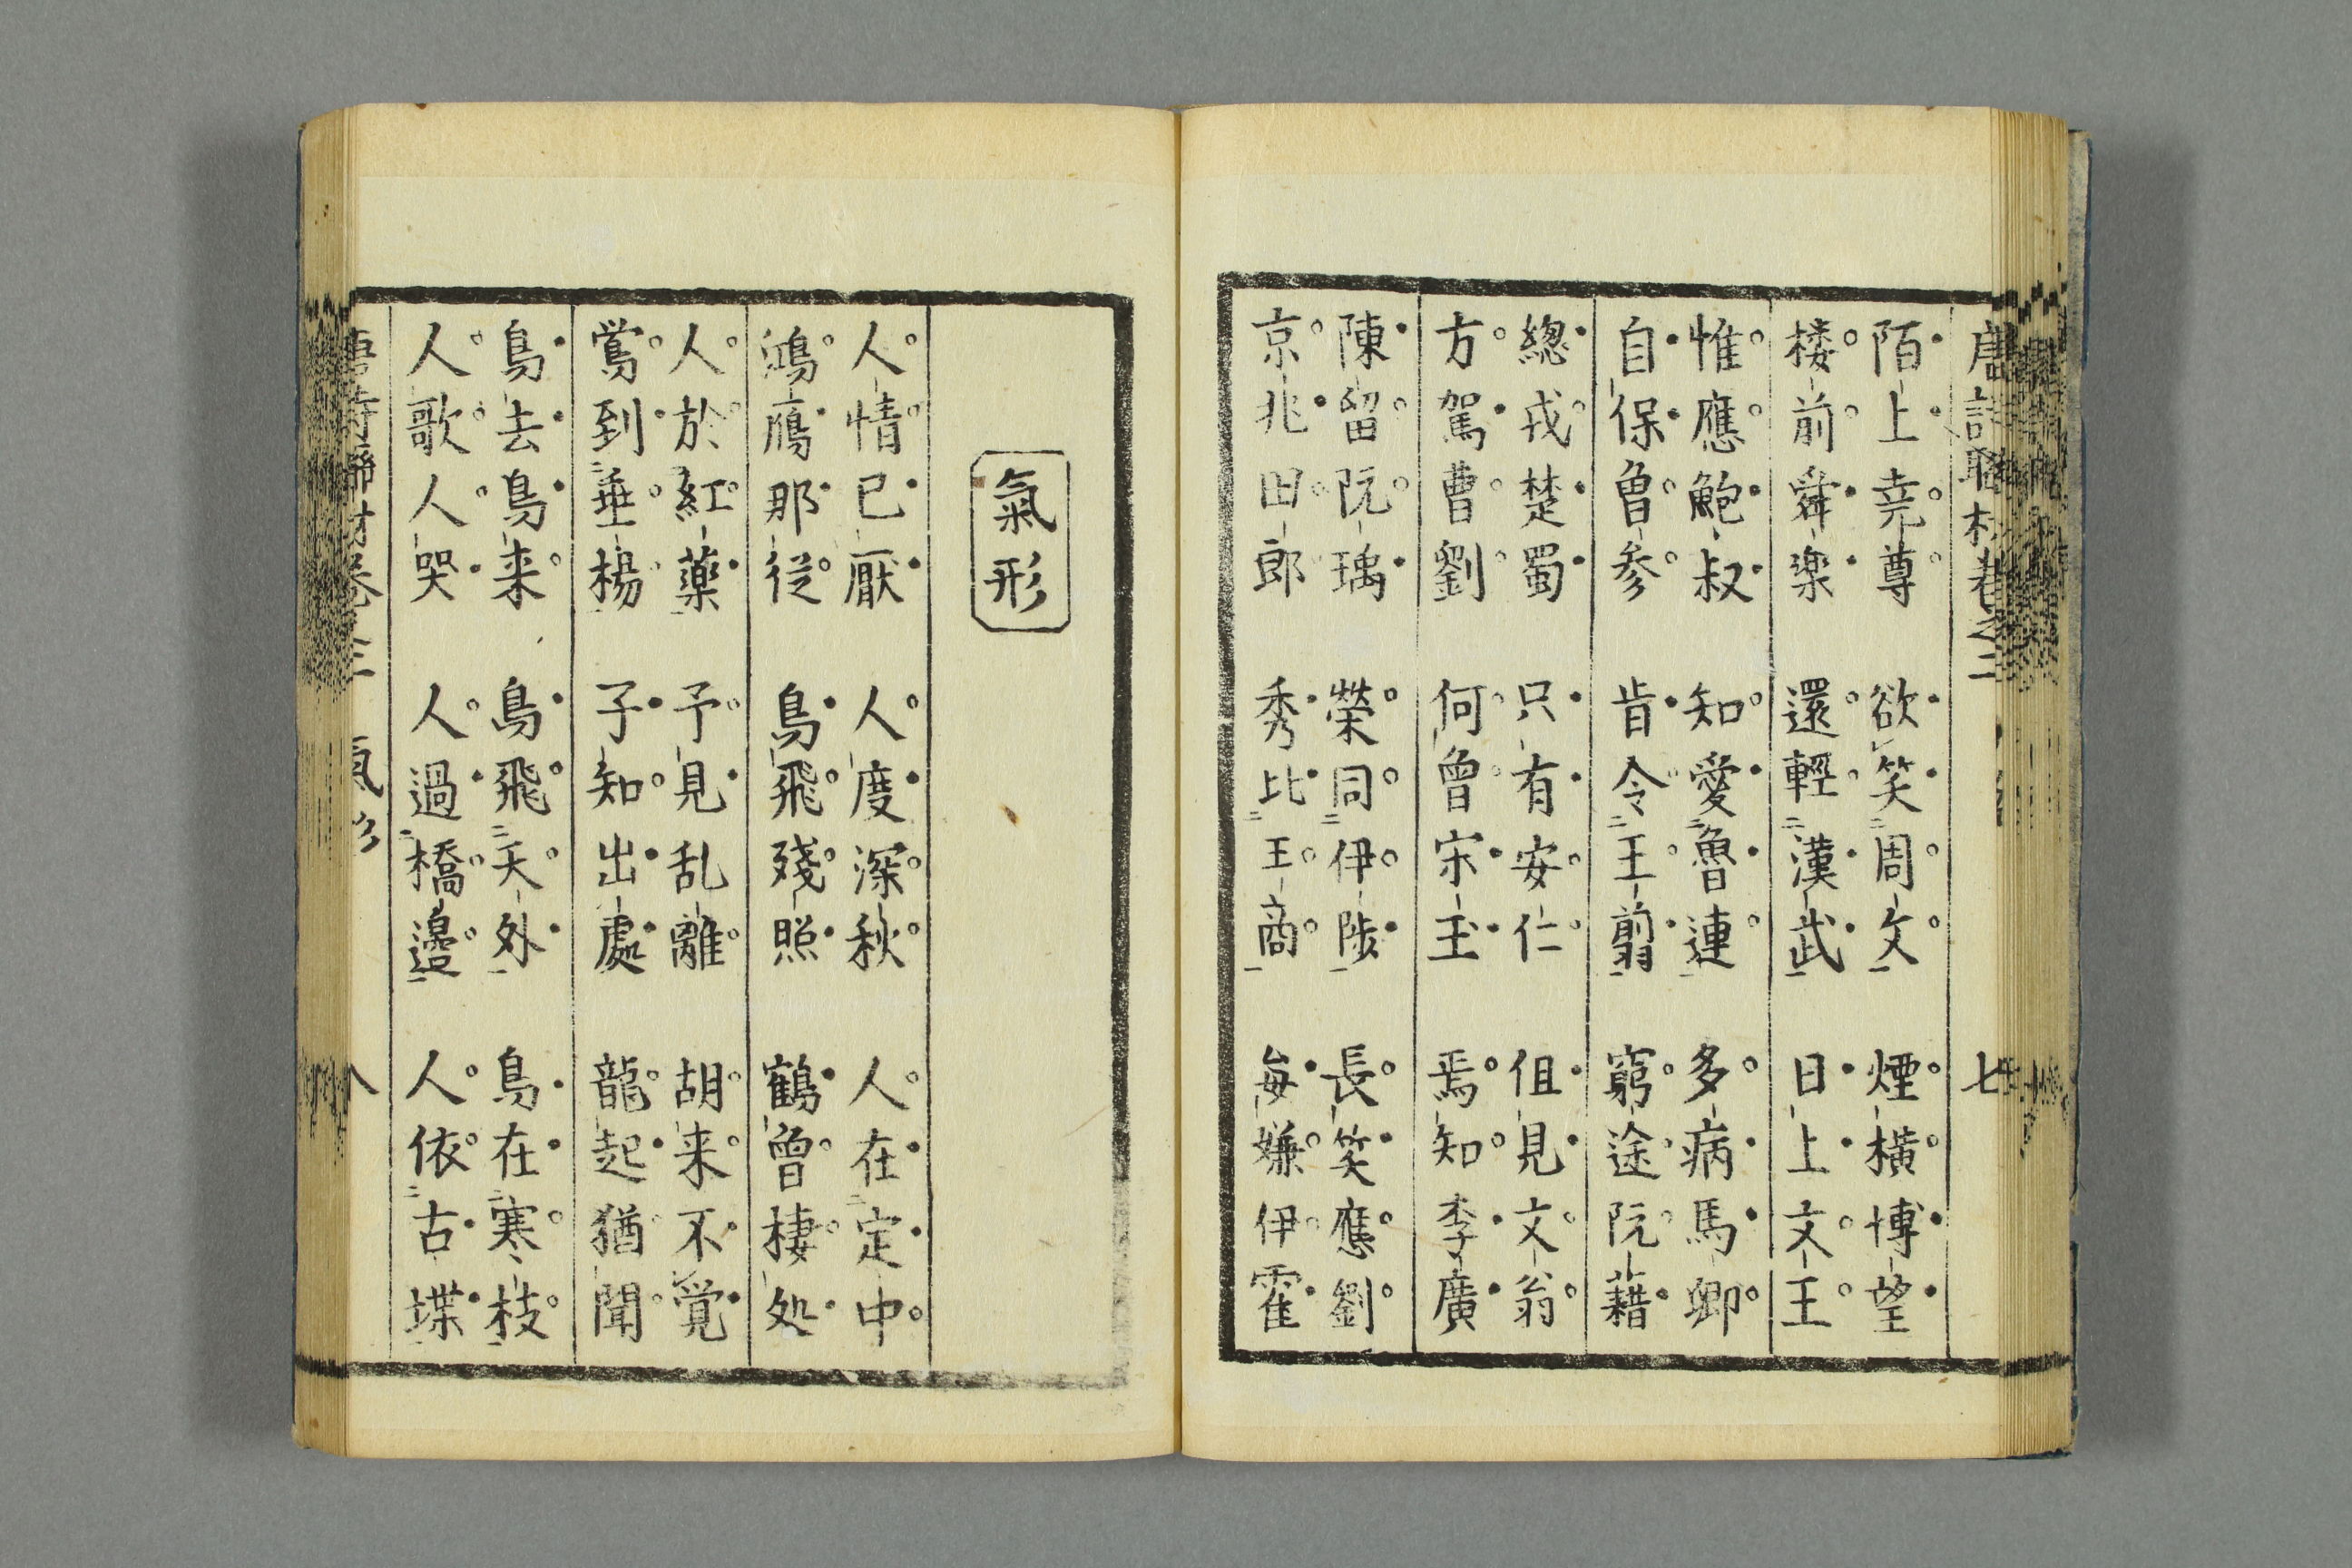 唐詩聯材卷之二
七
陌上尭尊 欲笑周文 煙橫博望
楼前舜楽 還輕漢武 日上文王
惟應鮑叔 知愛魯連 多病馬卿
自保曽参 肯令王翦 窮途阮藉
總戎楚蜀 只有安仁 但見文翁
方駕曹劉 何曾宋玉 焉知李廣
陳留阮瑀 榮同伊陟 長笑應劉
京兆田郎 秀比王商 毎嫌伊霍
氣形
人情已厭 人度深秋 人在定中
鴻鴈那從 鳥飛殘照 鶴曾棲処
人於紅藥 予見乱離 胡来不覚
鴬到垂楊 子知出處 龍起猶聞
鳥去鳥来 鳥飛天外 鳥在寒枝
人歌人哭 人過橋邉 人依古堞
唐詩聯材卷之二 氣形
八